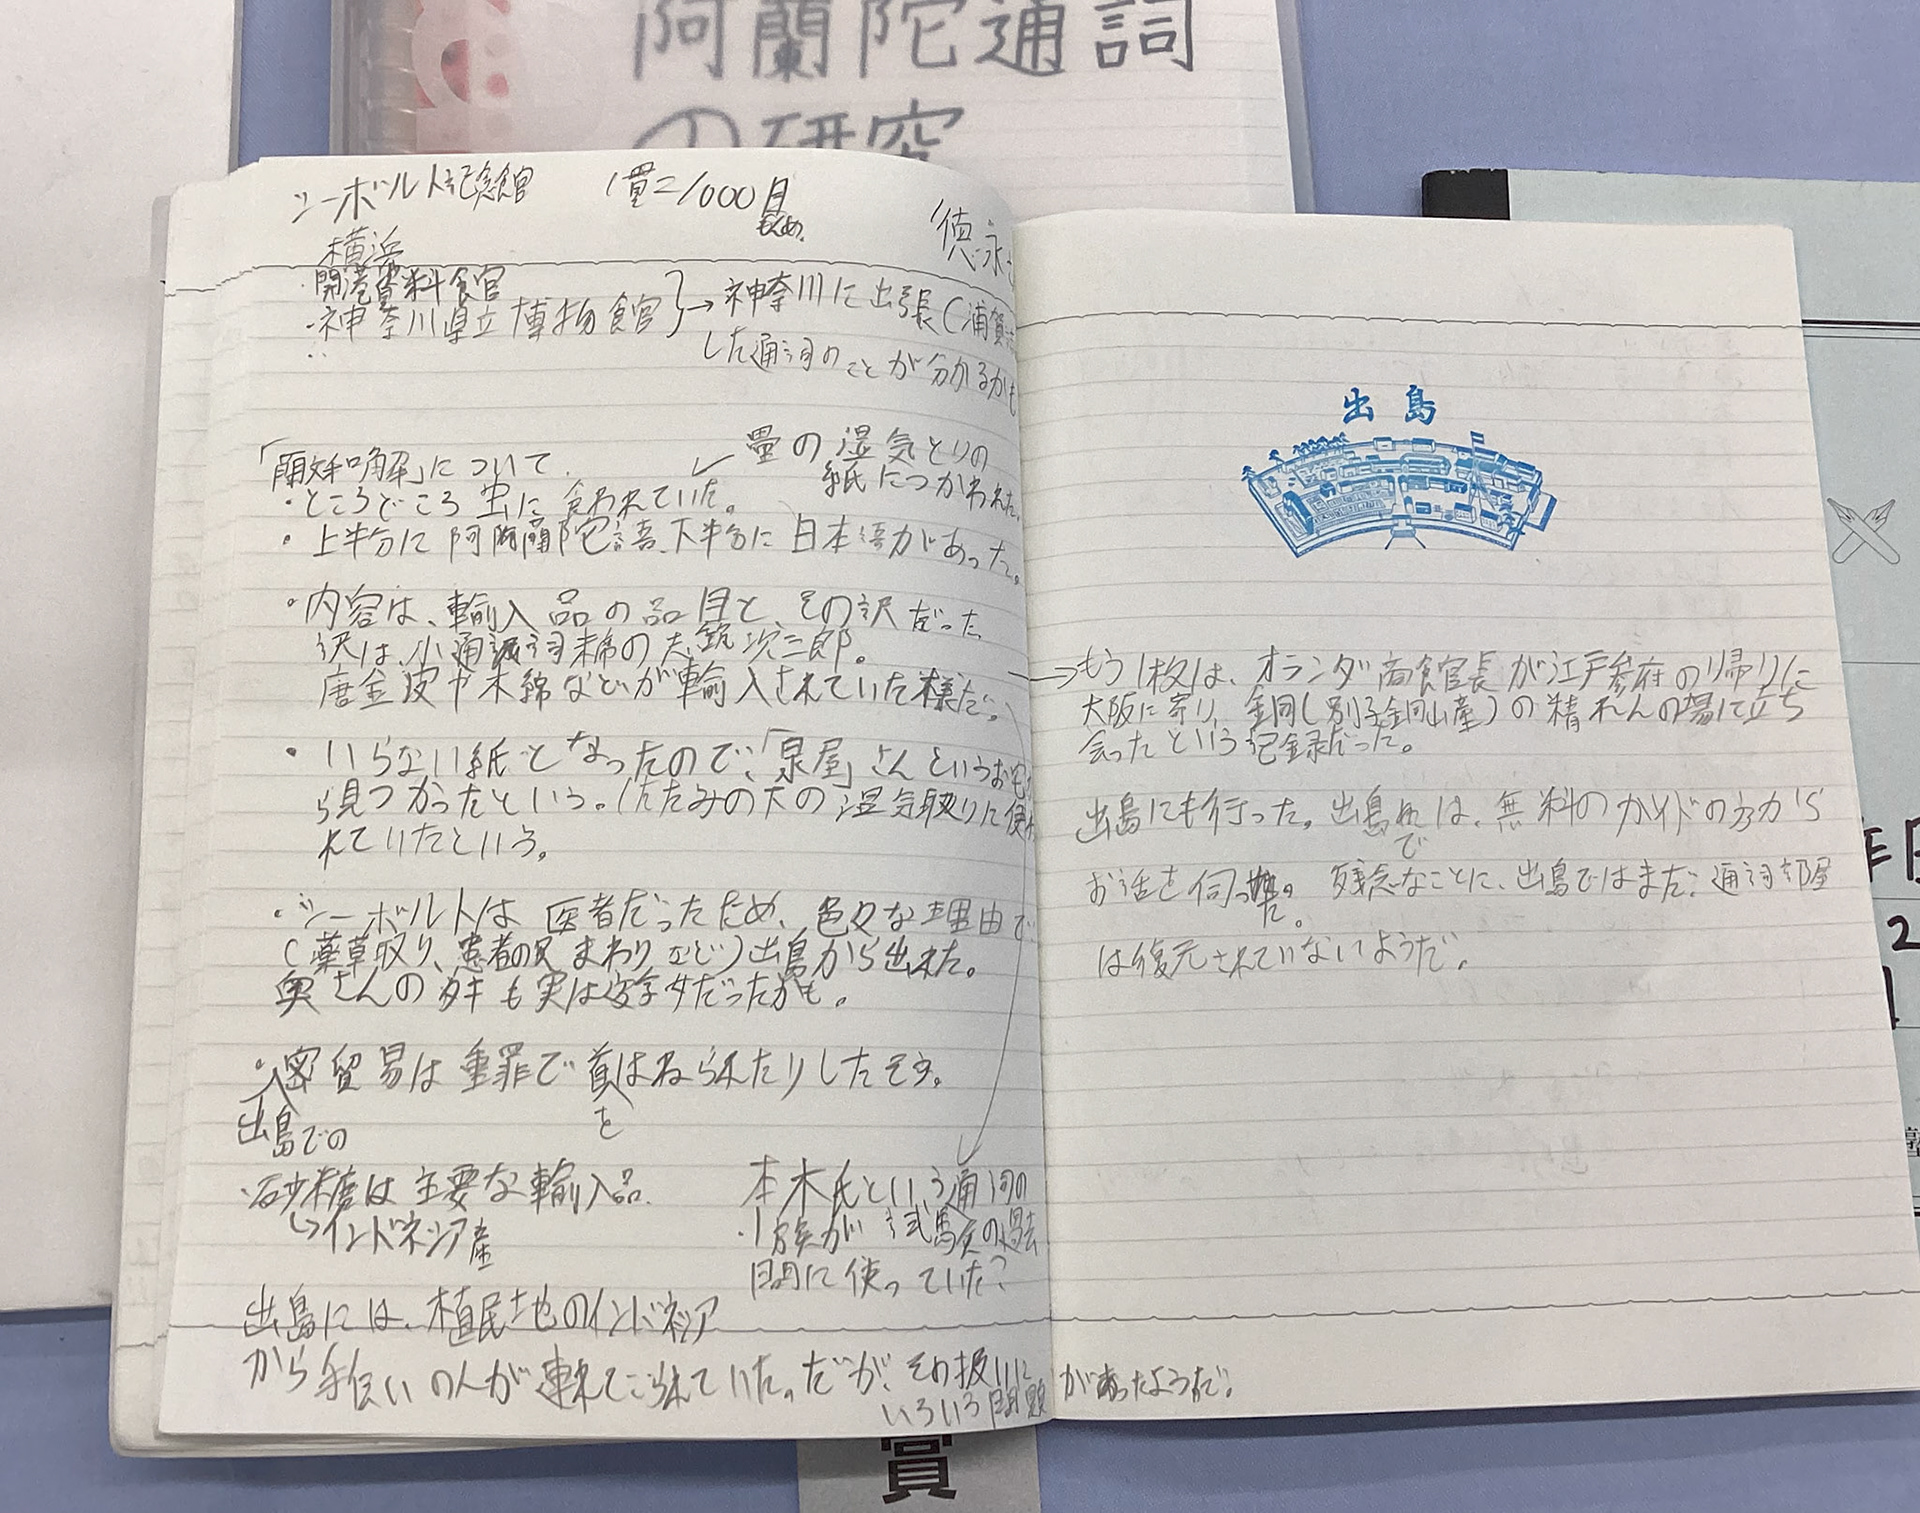 阿蘭陀通詞
の研究
シーボルト記念館 1貫=1000目
もんめ
徳永さ
横浜
・開港資料館
・神奈川県立博物館 → 神奈川に出張(浦賀
した通詞のことが分かるかも
「蘭文和解」について
畳の湿気とりの
紙につかわれた。
・ところどころ虫に食われていた。
・上半分に阿蘭陀語、下半分に日本語があった。
・内容は、輸入品の品目と、その訳だった
訳は、小通詞末席の志筑次三郎。
唐金皮や木綿などが輸入されていた様だ。
・いらない紙となったので、「泉屋」さんというお宅か
ら見つかったという。(たたみの下の湿気取りに使わ
れていたという。
・シーボルトは医者だったため、色々な理由で
(薬草取り、患者の見まわりなど)出島から出れた。
奥さんのタキも実は遊女だったかも。
・密貿易は重罪で首はねられたりしたそう。
出島での
を
・砂糖は主要な輸入品。
↳インドネシア産
本木氏という通詞の
1族が試験の過去
問に使っていた?
出島には、植民地のインドネシア
から手伝いの人が連れてこられていた。だが、その扱いに
いろいろ問題があったようだ。
出島
→もう1枚は、オランダ商館長が江戸参府の帰りに
大阪に寄り、銅(別子銅山産)の精れんの場に立ち
会ったという記録だった。
出島にも行った。出島では、無料のガイドの方から
お話を伺った。残念なことに、出島ではまだ、通詞部屋
は復元されていないようだ。
賞
2
塾